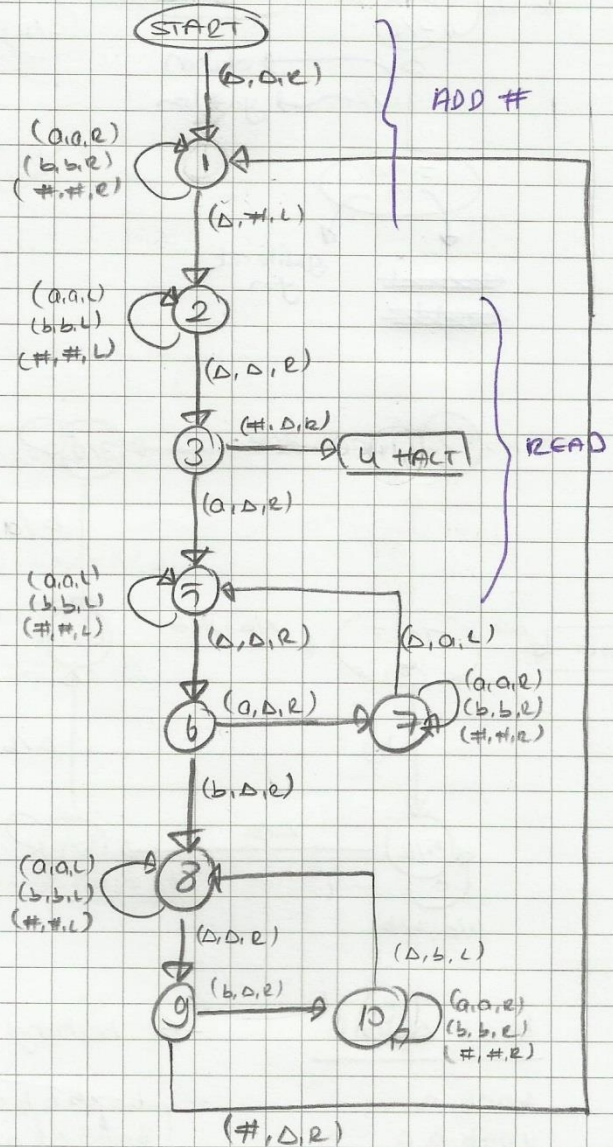 START
(Δ,Δ,R)
ADD #
(a,a,R)
(b,b,R)
(#,#,R)
1
(Δ,#,L)
(a,a,L)
(b,b,L)
(#,#,L)
2
(Δ,Δ,R)
3
(#,Δ,R)
4 HALT
READ
(a,Δ,R)
(a,a,L)
(b,b,L)
(#,#,L)
5
(Δ,Δ,R)
(Δ,a,L)
6
(a,Δ,R)
7
(a,a,R)
(b,b,R)
(#,#,R)
(b,Δ,R)
(a,a,L)
(b,b,L)
(#,#,L)
8
(Δ,Δ,R)
(Δ,b,L)
9
(b,Δ,R)
10
(a,a,R)
(b,b,R)
(#,#,R)
(#,Δ,R)